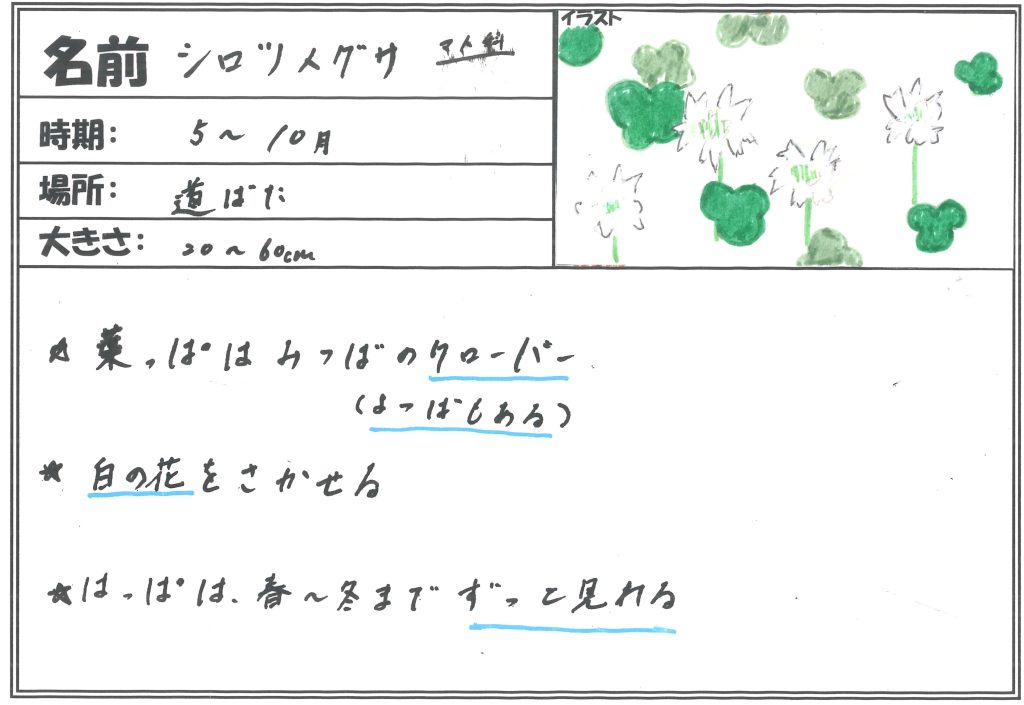 名前 シロツメグサ マメ科
イラスト
時期: 5〜10月
場所: 道ばた
大きさ: 20〜60cm
☆ 葉っぱはみつばのクローバー
(よつばもある)
☆ 白の花をさかせる
☆はっぱは、春〜冬までずっと見れる